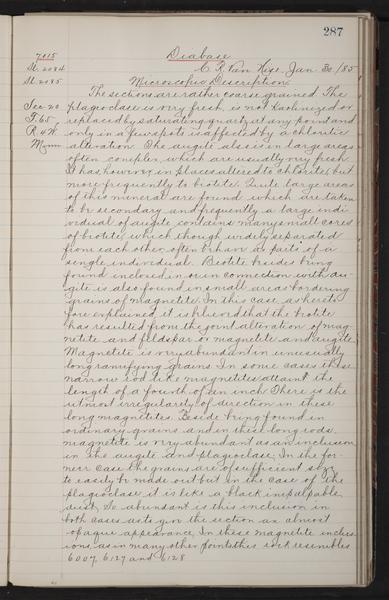 287
7015 Diabase
Sl. 2084 C. R. Van Hise Jan 30/85
Sl. 2085 Microscopic Description.
The sections are rather coarse grained. The
Sec 20 plagioclase is very fresh, is not kaolinized or
T 65 replaced by saturating quartz at any point and
R 4 W only in a few spots is affected by a chloritic
Minn alteration. The augite also is in large areas
often complex, which are usually very fresh.
It has however in places altered to chlorite, but
more frequently to biotite. Quite large areas
of this mineral are found which are taken
to be secondary and frequently a large indi-
vidual of augite contains many small cores
of biotite, which though widely separated
from each other often behave as parts of a
single individual. Biotite besides being
found inclosed in or in connection with au-
gite is also found in small areas bordering
grains of magnetite. In this case, as hereto-
fore explained, it is believed that the biotite
has resulted from the joint alteration of mag-
netite and feldspar or magnetite and augite.
Magnetite is very abundant in unusually
long ramifying grains. In some cases these
narrow rod like magnetites attain the
length of a fourth of an inch. There is the
utmost irregularity of direction in these
long magnetites. Beside being found in
ordinary grains and in these long rods
magnetite is very abundant as an inclusion
in the augite and plagioclase. In the for-
mer case the grains are of sufficient size
to easily be made out but in the case of the
plagioclase it is like a black impalpable
dust. So abundant is this inclusion in
both cases as to give the section an almost
opaque appearance. In these magnetite inclus-
ions as in many other points this rock resembles
6007, 6127 and 6128